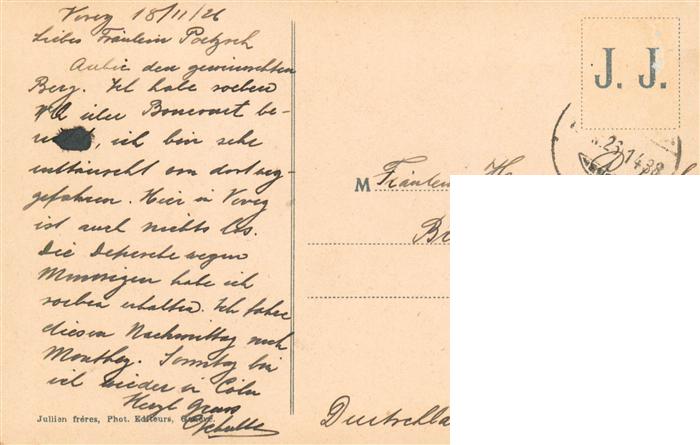 Vevey 18/11/26
Liebes Fräulein Poetzsch
Anbei den gewünschten
Berg. Ich habe soeben
über Bouveret be-
, ich bin sehr
enttäuscht von dort weg-
gefahren. Hier in Vevey
ist auch nichts los.
Die Depesche wegen
habe ich
soeben erhalten. Ich fahre
diesen Nachmittag nach
Monthey. Sonntag bin
ich wieder in Cöln
Herzl Gruss
Schulte
Jullien frères, Phot. Editeurs, Genève.
J. J.
M Fräulein
Deutschla